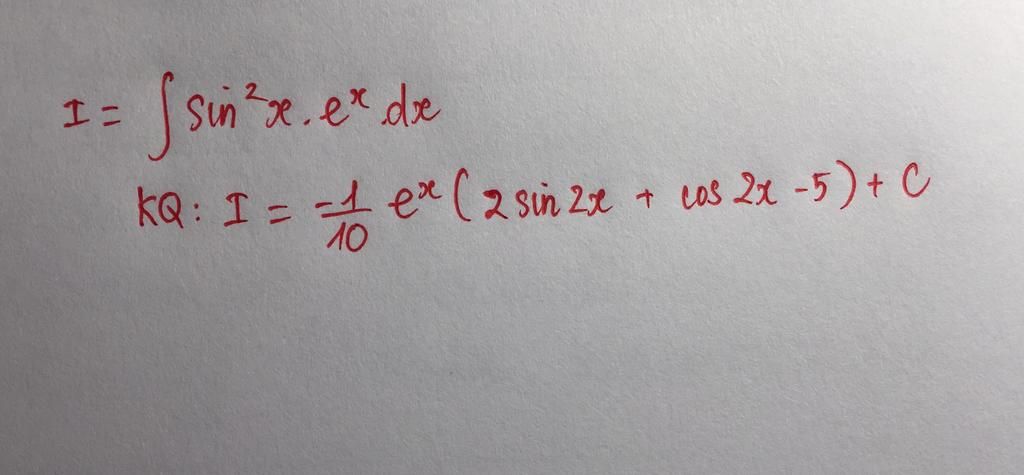 I = ∫ sin²x . eˣ dx
KQ: I = -1/10 eˣ ( 2 sin 2x + cos 2x - 5 ) + C